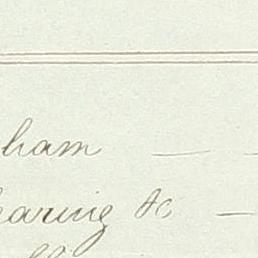 ham —
earing &c —